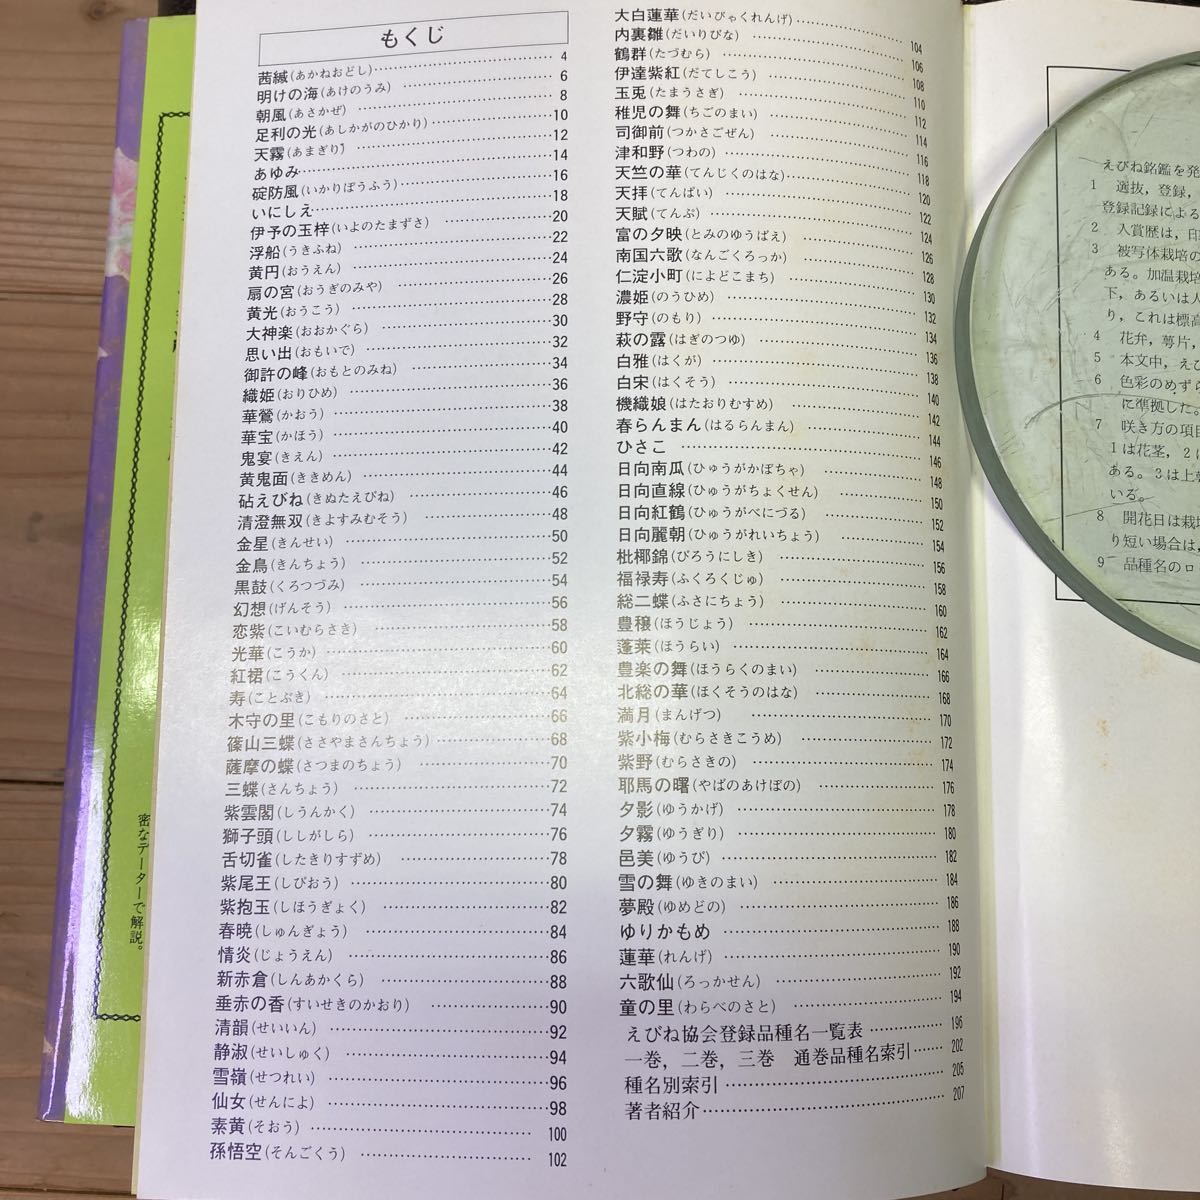 もくじ
茜縅(あかねおどし)…………4
明けの海(あけのうみ)…………6
朝風(あさかぜ)…………8
足利の光(あしかがのひかり)…………10
天霧(あまぎり)…………12
あゆみ…………14
碇防風(いかりぼうふう)…………16
いにしえ…………18
伊予の玉梓(いよのたまずさ)…………20
浮船(うきふね)…………22
黄円(おうえん)…………24
扇の宮(おうぎのみや)…………26
黄光(おうこう)…………28
大神楽(おおかぐら)…………30
思い出(おもいで)…………32
御許の峰(おもとのみね)…………34
織姫(おりひめ)…………36
華鶯(かおう)…………38
華宝(かほう)…………40
鬼宴(きえん)…………42
黄鬼面(ききめん)…………44
砧えびね(きぬたえびね)…………46
清澄無双(きよすみむそう)…………48
金星(きんせい)…………50
金鳥(きんちょう)…………52
黒鼓(くろつづみ)…………54
幻想(げんそう)…………56
恋紫(こいむらさき)…………58
光華(こうか)…………60
紅裙(こうくん)…………62
寿(ことぶき)…………64
木守の里(こもりのさと)…………66
篠山三蝶(ささやまさんちょう)…………68
薩摩の蝶(さつまのちょう)…………70
三蝶(さんちょう)…………72
紫雲閣(しうんかく)…………74
獅子頭(ししがしら)…………76
舌切雀(したきりすずめ)…………78
紫尾王(しびおう)…………80
紫抱玉(しほうぎょく)…………82
春暁(しゅんぎょう)…………84
情炎(じょうえん)…………86
新赤倉(しんあかくら)…………88
垂赤の香(すいせきのかおり)…………90
清韻(せいいん)…………92
静淑(せいしゅく)…………94
雪嶺(せつれい)…………96
仙女(せんによ)…………98
素黄(そおう)…………100
孫悟空(そんごくう)…………102
大白蓮華(だいびゃくれんげ)…………104
内裏雛(だいりびな)…………106
鶴群(たづむら)…………108
伊達紫紅(だてしこう)…………110
玉兎(たまうさぎ)…………112
稚児の舞(ちごのまい)…………114
司御前(つかさごぜん)…………116
津和野(つわの)…………118
天竺の華(てんじくのはな)…………120
天拝(てんぱい)…………122
天賦(てんぷ)…………124
富の夕映(とみのゆうばえ)…………126
南国六歌(なんごくろっか)…………128
仁淀小町(によどこまち)…………130
濃姫(のうひめ)…………132
野守(のもり)…………134
萩の露(はぎのつゆ)…………136
白雅(はくが)…………138
白宋(はくそう)…………140
機織娘(はたおりむすめ)…………142
春らんまん(はるらんまん)…………144
ひさこ…………146
日向南瓜(ひゅうがかぼちゃ)…………148
日向直線(ひゅうがちょくせん)…………150
日向紅鶴(ひゅうがべにづる)…………152
日向麗朝(ひゅうがれいちょう)…………154
枇椰錦(びろうにしき)…………156
福禄寿(ふくろくじゅ)…………158
総二蝶(ふさにちょう)…………160
豊穣(ほうじょう)…………162
蓬莱(ほうらい)…………164
豊楽の舞(ほうらくのまい)…………166
北総の華(ほくそうのはな)…………168
満月(まんげつ)…………170
紫小梅(むらさきこうめ)…………172
紫野(むらさきの)…………174
耶馬の曙(やばのあけぼの)…………176
夕影(ゆうかげ)…………178
夕霧(ゆうぎり)…………180
邑美(ゆうび)…………182
雪の舞(ゆきのまい)…………184
夢殿(ゆめどの)…………186
ゆりかもめ…………188
蓮華(れんげ)…………190
六歌仙(ろっかせん)…………192
童の里(わらべのさと)…………194
えびね協会登録品種名一覧表…………196
一巻，二巻，三巻　通巻品種名索引……202
種名別索引…………205
著者紹介…………207
えびね銘鑑を発
1　選抜，登録，
登録記録による
2　入賞歴は，印
3　被写体栽培の
ある。加温栽培
下，あるいは人
り，これは標高
4　花弁，萼片，
5　本文中，えび
6　色彩のめずら
に準拠した。
7　咲き方の項目
1は花茎，2に
ある。3は上
いる。
8　開花日は栽培
り短い場合は，
9　品種名のロー
密なデーターで解説。